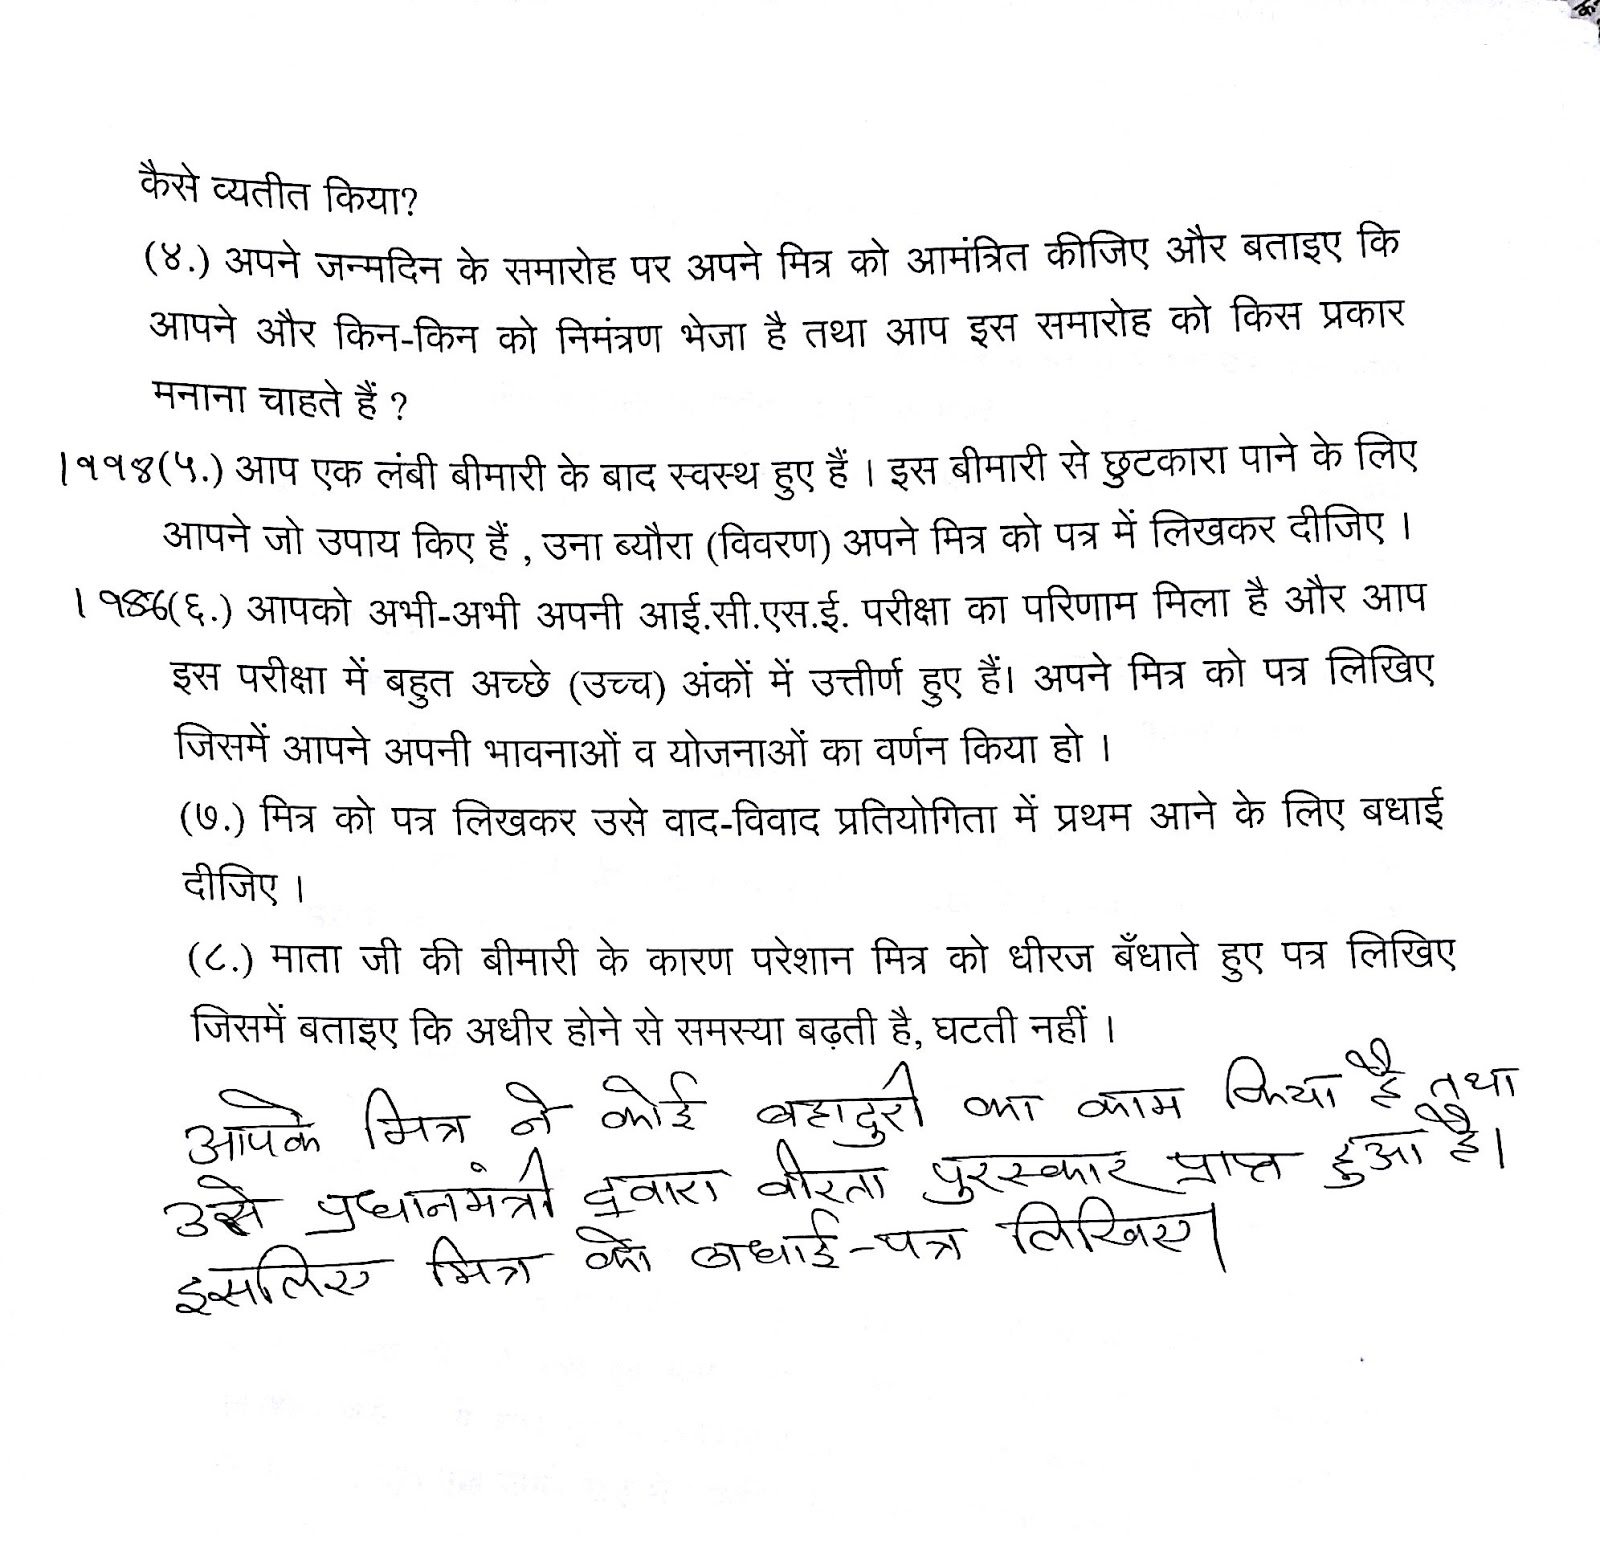 कैसे व्यतीत किया?
(४.) अपने जन्मदिन के समारोह पर अपने मित्र को आमंत्रित कीजिए और बताइए कि
आपने और किन-किन को निमंत्रण भेजा है तथा आप इस समारोह को किस प्रकार
मनाना चाहते हैं ?
(५.) आप एक लंबी बीमारी के बाद स्वस्थ हुए हैं । इस बीमारी से छुटकारा पाने के लिए
आपने जो उपाय किए हैं , उना ब्यौरा (विवरण) अपने मित्र को पत्र में लिखकर दीजिए ।
(६.) आपको अभी-अभी अपनी आई.सी.एस.ई. परीक्षा का परिणाम मिला है और आप
इस परीक्षा में बहुत अच्छे (उच्च) अंकों में उत्तीर्ण हुए हैं। अपने मित्र को पत्र लिखिए
जिसमें आपने अपनी भावनाओं व योजनाओं का वर्णन किया हो ।
(७.) मित्र को पत्र लिखकर उसे वाद-विवाद प्रतियोगिता में प्रथम आने के लिए बधाई
दीजिए ।
(८.) माता जी की बीमारी के कारण परेशान मित्र को धीरज बँधाते हुए पत्र लिखिए
जिसमें बताइए कि अधीर होने से समस्या बढ़ती है, घटती नहीं ।
आपके मित्र ने कोई बहादुरी का काम किया है तथा
उसे प्रधानमंत्री द्वारा वीरता पुरस्कार प्राप्त हुआ है।
इसलिए मित्र को बधाई-पत्र लिखिए।